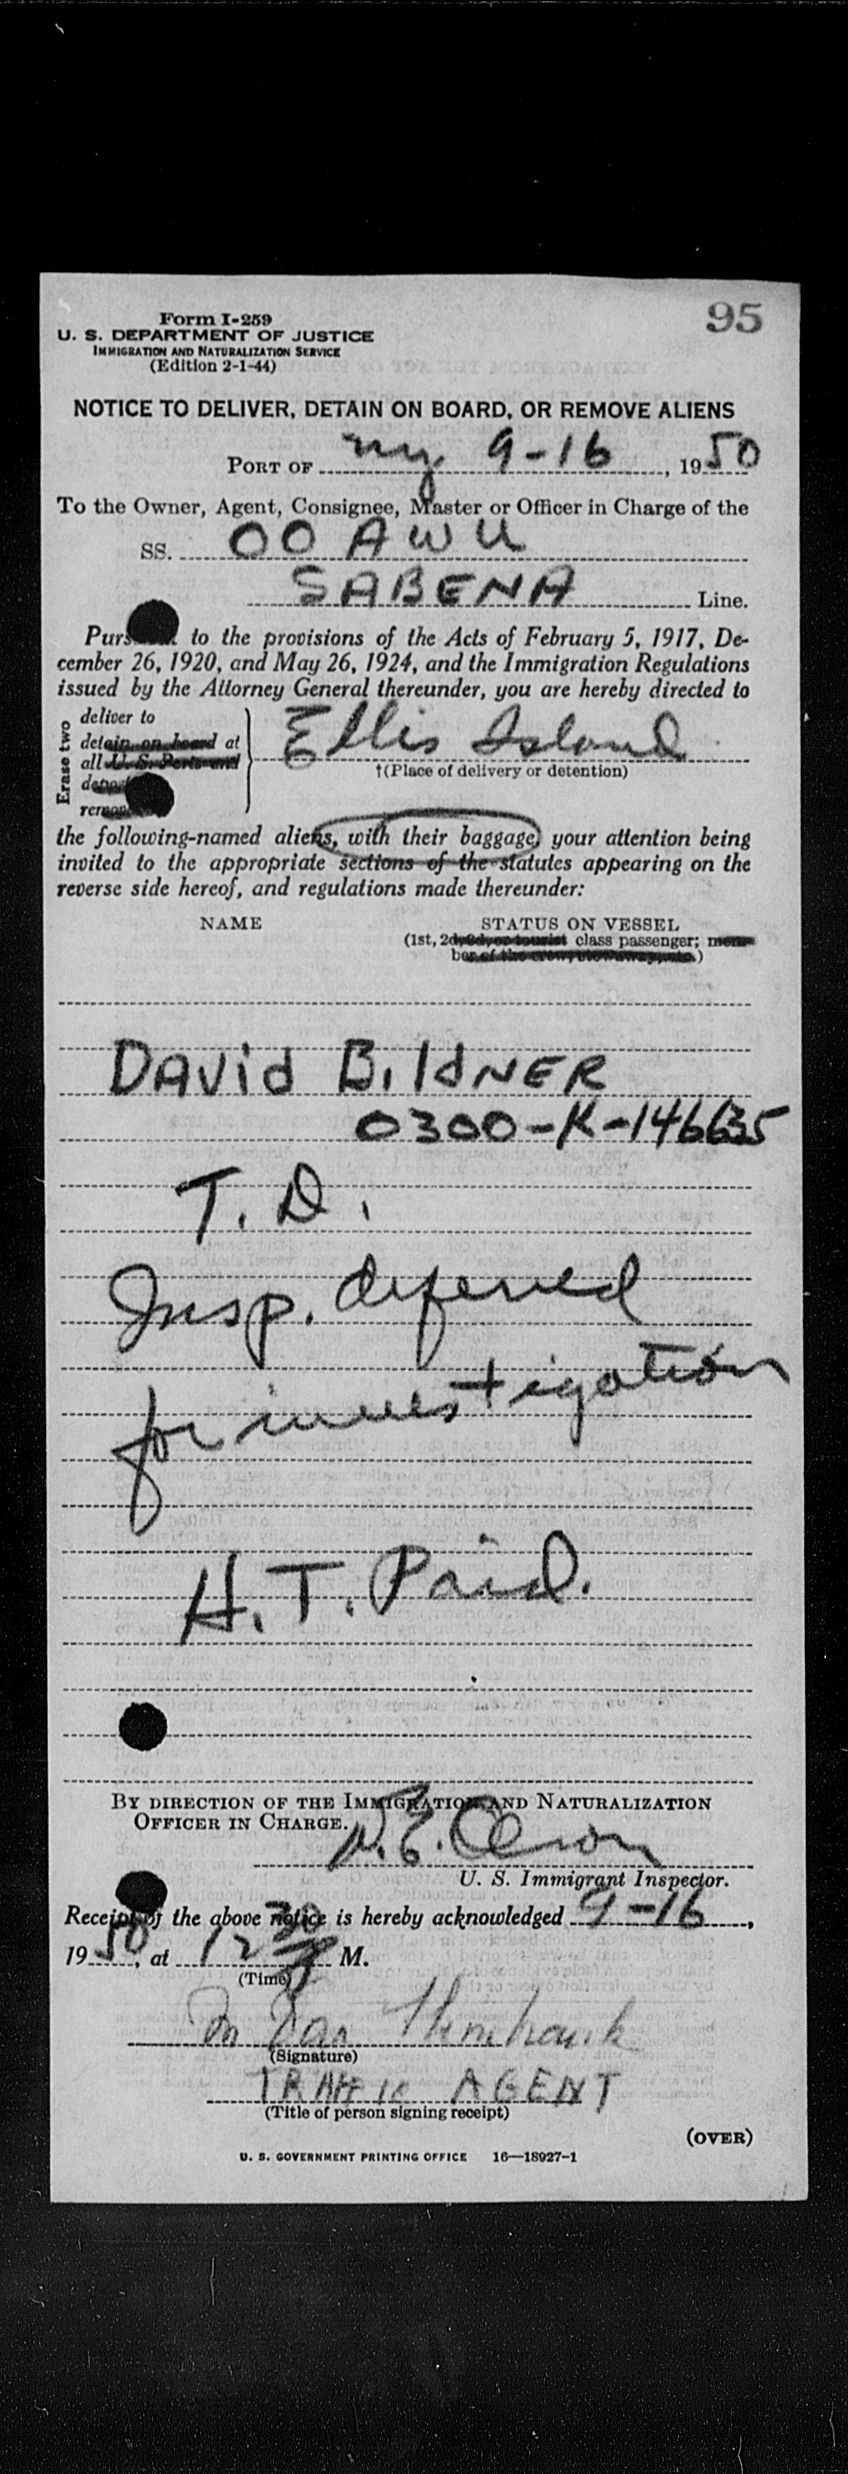 95
Form I-259
U. S. DEPARTMENT OF JUSTICE
IMMIGRATION AND NATURALIZATION SERVICE
(Edition 2-1-44)
NOTICE TO DELIVER, DETAIN ON BOARD, OR REMOVE ALIENS
PORT OF ny 9-16, 1950
To the Owner, Agent, Consignee, Master or Officer in Charge of the
SS. OO AWU
SABENA Line.
to the provisions of the Acts of February 5, 1917, De-
cember 26, 1920, and May 26, 1924, and the Immigration Regulations
issued by the Attorney General thereunder, you are hereby directed to
Erase two
deliver to
detain on board at
all U. S. Ports and
Ellis Island
†(Place of delivery or detention)
the following-named aliens, with their baggage, your attention being
invited to the appropriate sections of the statutes appearing on the
reverse side hereof, and regulations made thereunder:
NAME STATUS ON VESSEL
(1st, 2d, 3d, or tourist class passenger; mem-
ber of the crew, stowaway, etc.)
DAVid BildNER
0300-K-146635
T. D.
Insp. deferred
for investigation
H. T. Paid.
BY DIRECTION OF THE IMMIGRATION AND NATURALIZATION
OFFICER IN CHARGE.
Olson
U. S. Immigrant Inspector.
Receipt of the above notice is hereby acknowledged 9-16,
1950, at 12 30 M.
(Time)
(Signature)
TRAFFIC AGENT
(Title of person signing receipt)
(OVER)
U. S. GOVERNMENT PRINTING OFFICE 16—18927-1